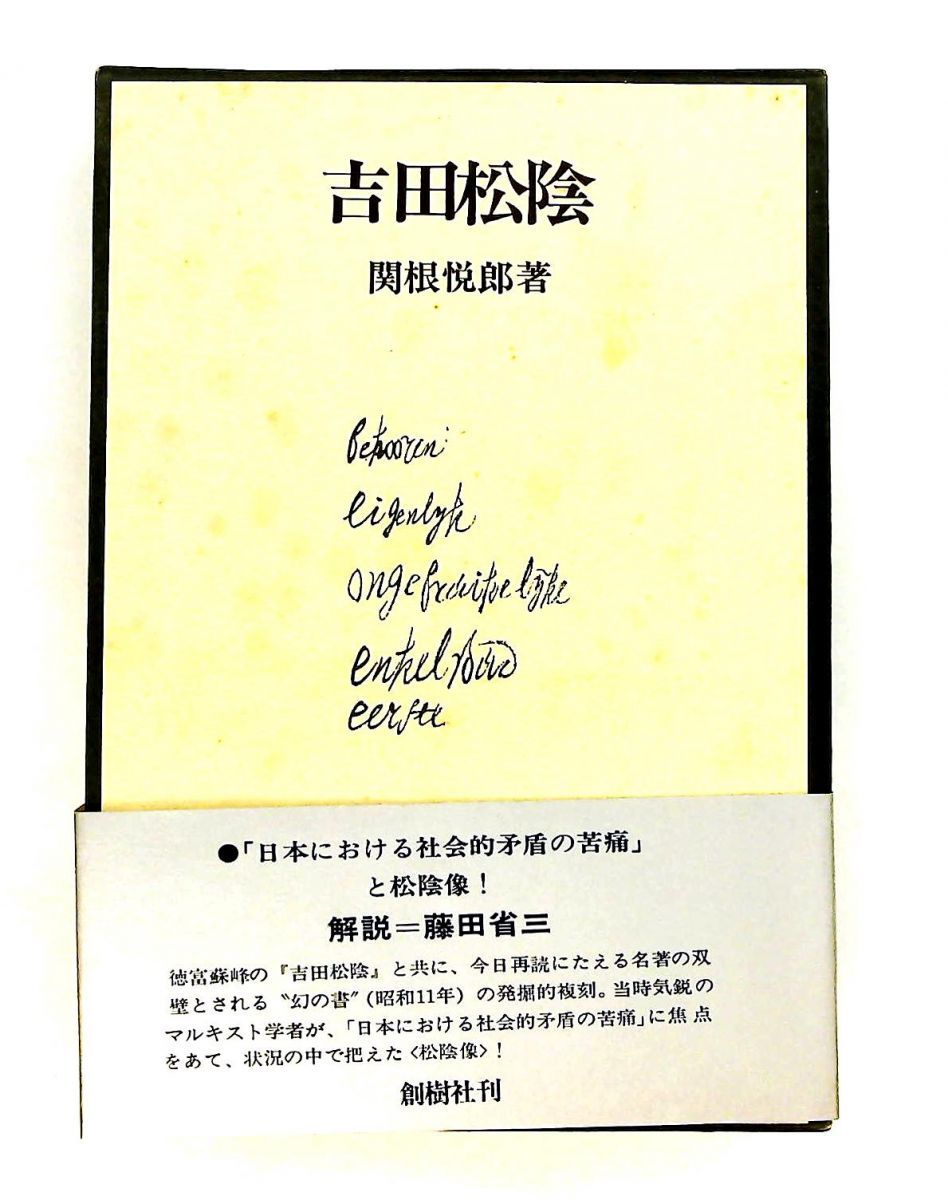 吉田松陰
関根悦郎著
Behooren
eigenlyk
enkel
eerste
●「日本における社会的矛盾の苦痛」
と松陰像！
解説＝藤田省三
徳富蘇峰の『吉田松陰』と共に、今日再読にたえる名著の双
壁とされる〝幻の書〟(昭和11年）の発掘的複刻。当時気鋭の
マルキスト学者が、「日本における社会的矛盾の苦痛」に焦点
をあて、状況の中で把えた〈松陰像〉！
創樹社刊